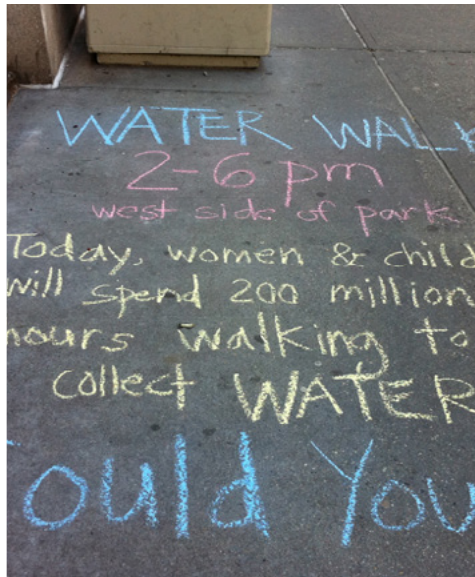 WATER WALK
2-6 pm
west side of park
Today, women & child
will spend 200 million
hours walking to
collect WATER
Could You